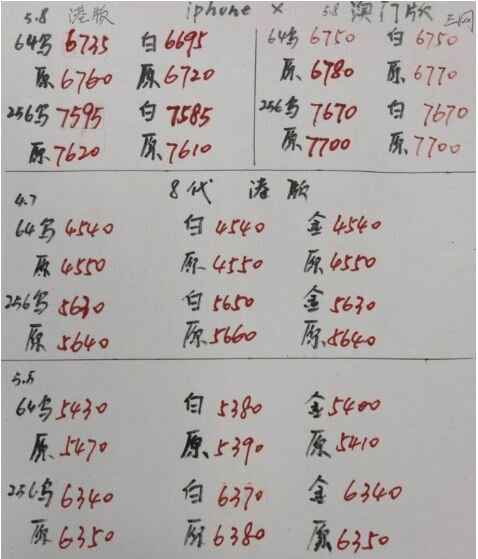 5.8 港版 iphone X 5.8 澳门版 三网
64乌 6735 白 6695 64乌 6750 白 6750
原 6760 原 6720 原 6780 原 6770
256乌 7595 白 7585 256乌 7670 白 7670
原 7620 原 7610 原 7700 原 7700
4.7 8代 港版
64乌 4540 白 4540 金 4540
原 4550 原 4550 原 4550
256乌 5630 白 5650 金 5630
原 5640 原 5660 原 5640
5.5
64乌 5430 白 5380 金 5400
原 5470 原 5390 原 5410
256乌 6340 白 6370 金 6340
原 6350 原 6380 原 6350